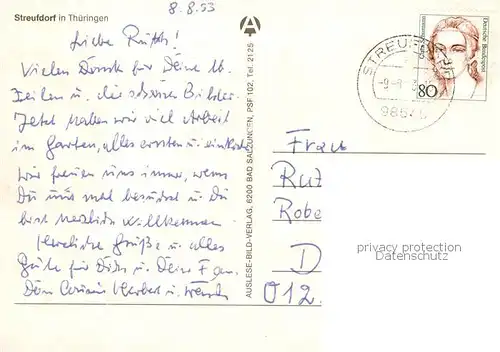 Streufdorf in Thüringen
8.8.93
Liebe Ruth!
Vielen Dank für Deine lb.
Zeilen u. die schönen Bilder.
Jetzt haben wir viel Arbeit
im Garten, alles ernten u.
wir freuen uns immer, wenn
Du uns mal besuchst u. Du
bist herzlich willkommen.
Herzliche Grüße u. alles
Gute für Dich u. Deine
Herbert u.
AUSLESE-BILD-VERLAG, 6200 BAD SALZUNGEN, PSF 102, Tel. 21 25
STREUFD
Deutsche Bundespost
80
Frau
Rut
Robe
D
012.
privacy protection
Datenschutz